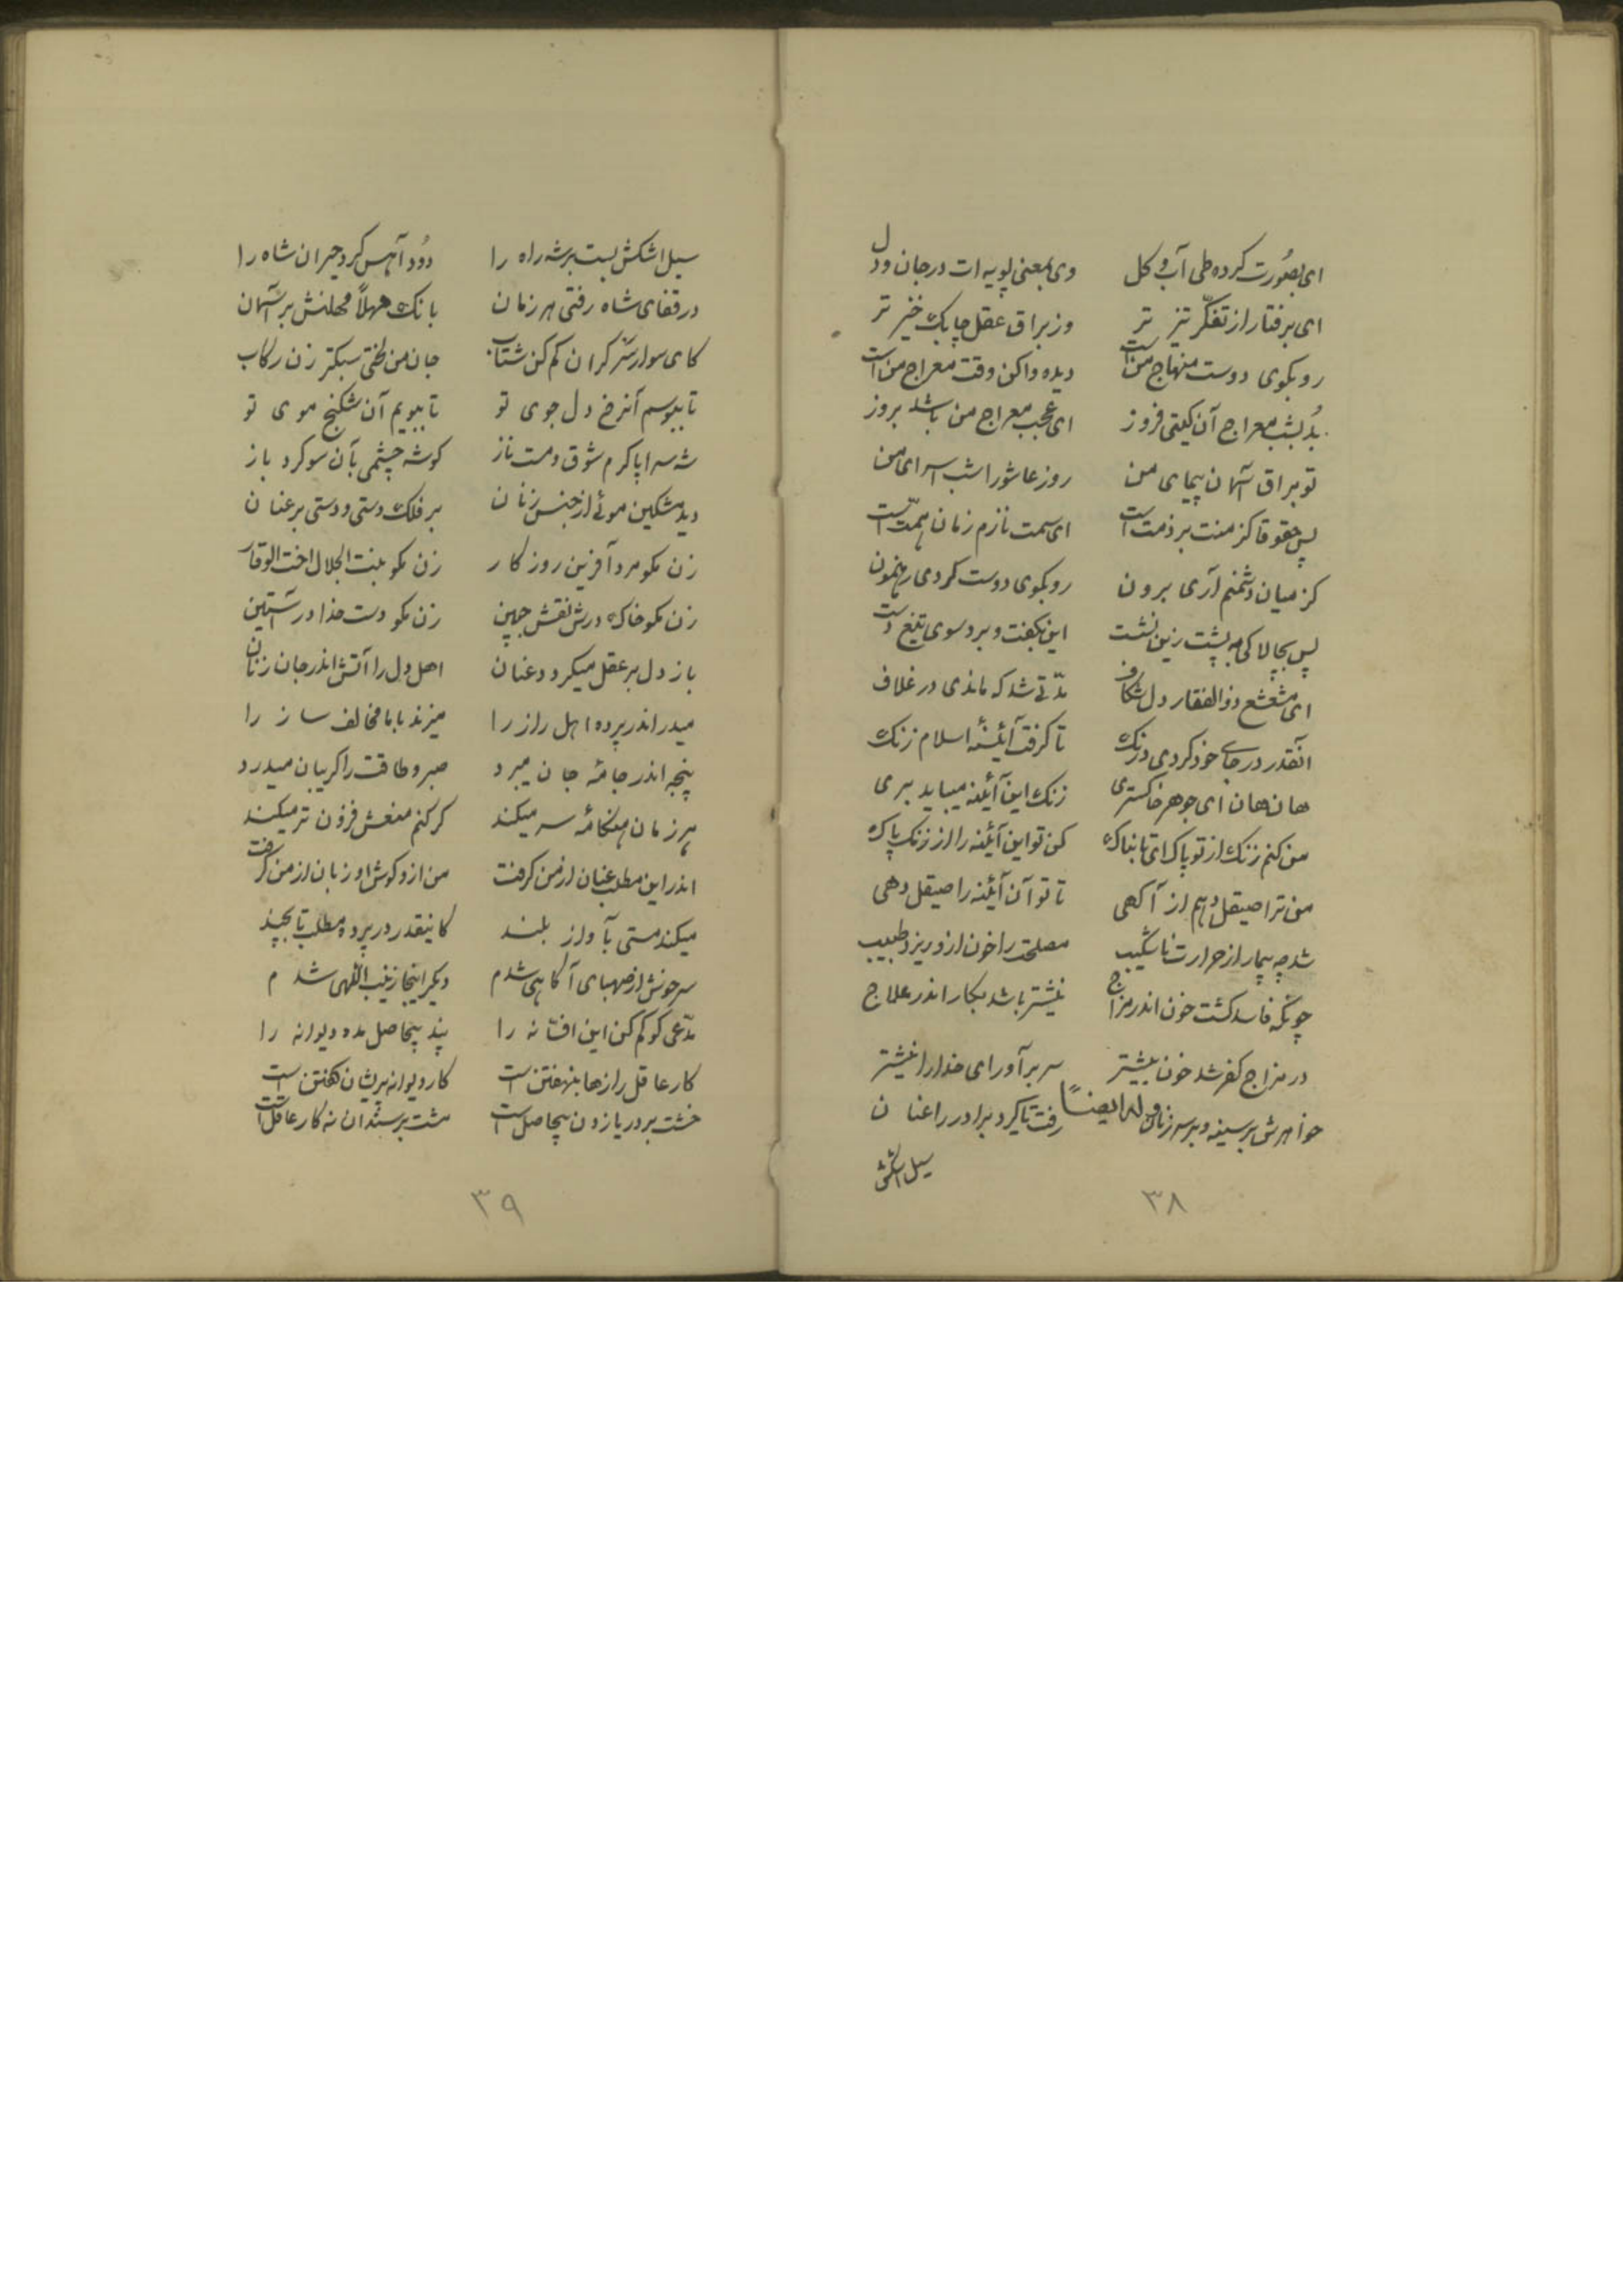 ای بصُورت کرده طی آب و کل وی بمعنی پویه ات در جان و دل
ای برفتار از تفکّر تیز تر وز براق عقل چابک خیز تر
رو بکوی دوست منهاج من است دیده وا کن وقت معراج من است
بُد بشب معراج آن کیتی فروز ای عجب معراج من باشد بروز
تو براق آسمان پیمای من روز عاشورا شب اسرای من
پس حقوقا کز منت بر ذمت است ای سمت نازم زمان همّت است
کز میان دشمنم آری برون رو بکوی دوست کردی رهنمون
پس بچالاکی به پشت زین نشت این بکفت و برد سوی تیغ دست
ای مشعشع ذوالفقار دل شکاف مدّتی شد که ماندی در غلاف
آنقدر در جای خود کردی درنک تا کرفت آئینهٔ اسلام زنک
هان هان ای جوهر خاکستری زنک این آئینه میباید بری
من کنم زنک از تو پاک ای تابناک کن تو این آئینه را از زنک پاک
من ترا صیقل دهم از آکهی تا تو آن آئینه را صیقل دهی
شد چه بیمار از حرارت ناشکیب مصلحت را خون ازو ریزد طبیب
چونکه فاسد کشت خون اندر مزاج نیشتر باشد بکار اندر علاج
در مزاج کفر شد خون بیشتر سر برآور ای خدا را نیشتر
وله ایضاً
خواهرش بر سینه و بر سر زنان رفت تا کیرد برادر را عنان
سیل اشکش
۳۸
سیل اشکش بست بر شه راه را دُود آهس کرد حیران شاه را
در قفای شاه رفتی هر زمان بانک مهلاً مهلنش بر آسمان
کای سوار سر کران کم کن شتاب جان من لختی سبکتر زن رکاب
تا ببوسم آنرخ دل جوی تو تا ببویم آن شکنج موی تو
شه سراپا کرم شوق و مست ناز کوشه چشمی بآن سو کرد باز
دید مشکین موئی از جنس زنان بر فلک دستی و دستی بر عنان
زن مکو مرد آفرین روز کار زن مکو بنت الجلال اخت الوقار
زن مکو خاک درش نقش جبین زن مکو دست خدا در آستین
باز دل بر عقل میکیرد عنان اهل دل را آتش اندر جان زنان
میدراند پرده اهل راز را میزند با ما مخالف ساز را
پنجه اندر جامهٔ جان میبرد صبر و طاقت را کریبان میدرد
هر زمان هنکامهٔ سر میکند کر کنم منعش فزون تر میکند
اندر این مطلب عنان از من کرفت من ازو کوش او زبان از من کرفت
میکند مستی بآواز بلند کاینقدر در پرده مطلب تا بچند
سر خوش از صهبای آکاهی شدم دیکر اینجا زینب اللهی شدم
مدّعی کو کم کن این افسانه را پند بیحاصل مده دیوانه را
کار عاقل رازها بنهفتن است کار دیوانه پریشان کفتن است
خشت بر دریا زدن بیحاصل است مشت بر سندان نه کار عاقل است
۳۹